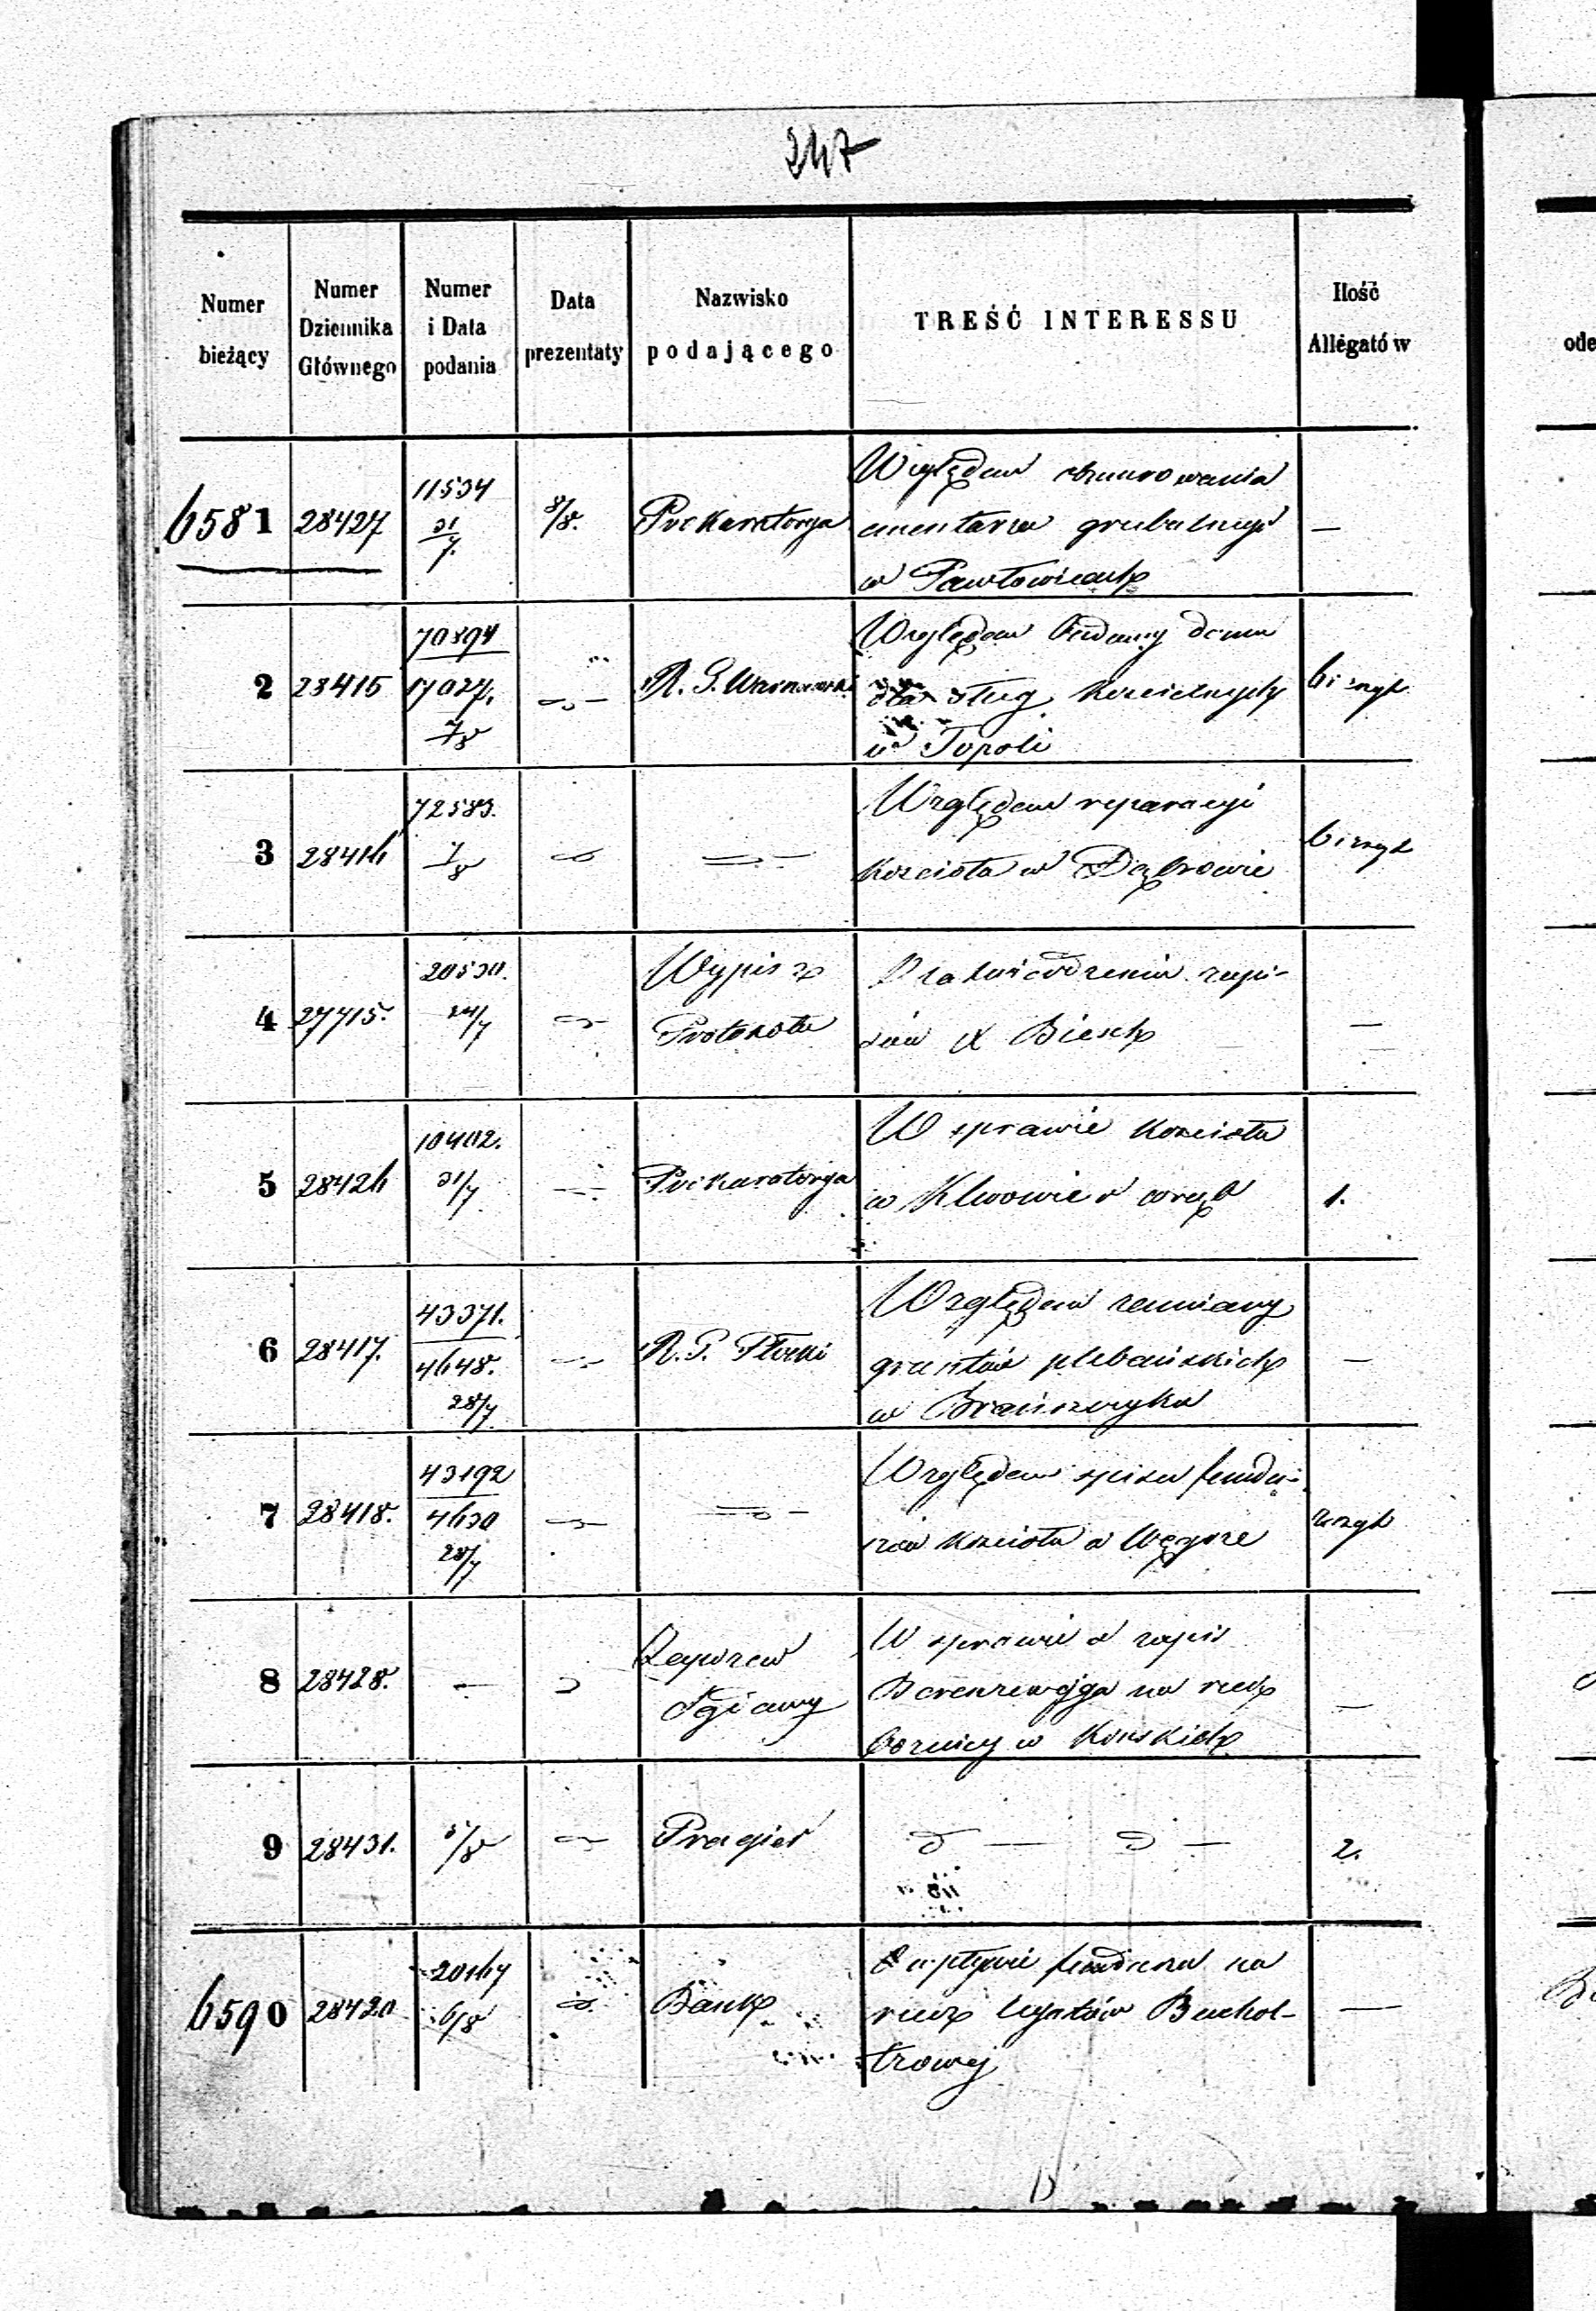 247
Numer bieżący
Numer Dziennika Głównego
Numer i Data podania
Data prezentaty
Nazwisko podającego
TREŚĆ INTERESSU
Ilość Allegatów
ode
6581 28427 11534 31/7. 8/8. Prokuratorya
Względem obmurowania
cmentarza grzebalnego
w Pawłowicach
—
2 28415 70894 17027. 7/8 R. G. Warszawski
Względem budowy domu
dla sług kościelnych
w Topoli
3 28416 72583. 7/8
Względem reparacyi
kościoła w Dąbrowie
4 27715. 20530. 24/7 Wypis z
Protokołu
zapi-
sów X Biesch
—
5 28426 10402. 31/7 Prokuratorya
W sprawie kościoła
w Klwowie
1.
6 28417. 43371. 4648. 28/7 R. G. Płocki
Względem zamiany
gruntów plebańskich
w Brańszczyku
—
7 28418. 43192 4630 28/7
Względem spisu fundu-
szów kościoła w Węgrze
8 28428. —
W sprawie o zapis
na rzecz
bożnicy w Końskich
—
9 28431. 5/8 Pragier
2.
6590 28420 20167 6/8 Bank
O wpływie funduszu na
rzecz legatów Buchol-
trowej
—